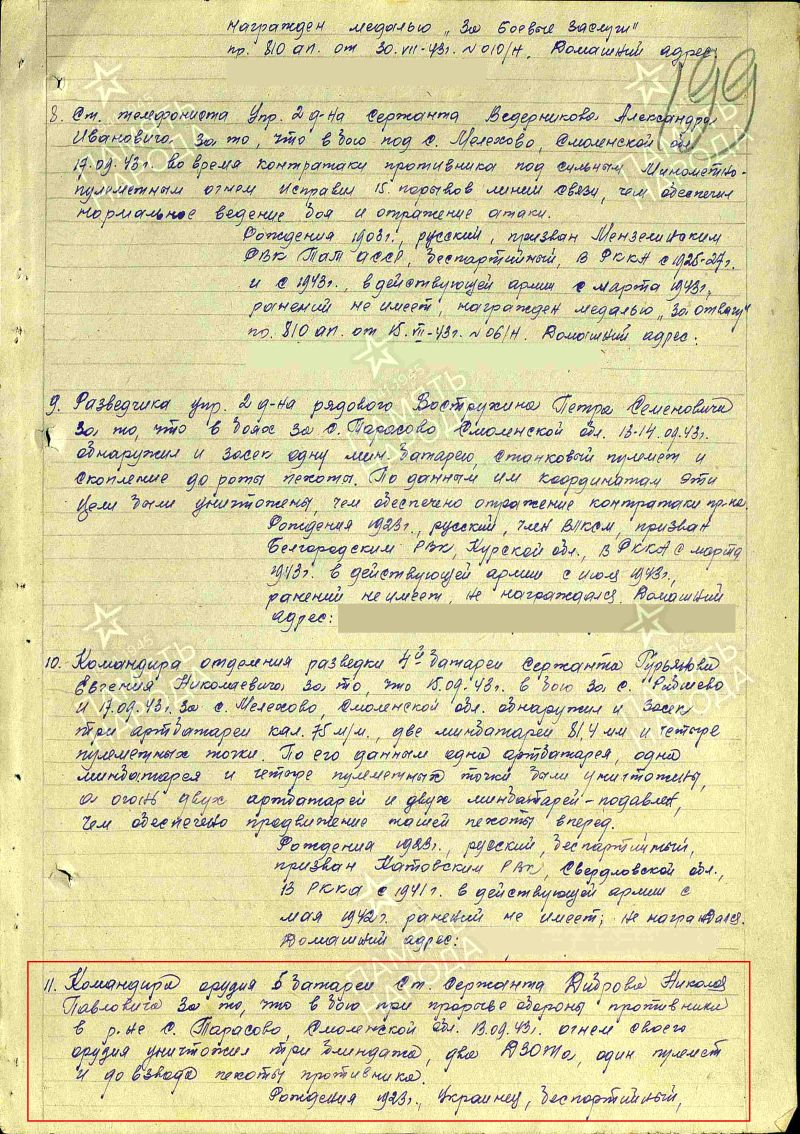 награжден медалью „За боевые заслуги"
пр. 810 ап. от 30.VII-43г. №010/н. Домашний адрес
199
8. Ст. телефониста упр. 2 д-на сержанта Ведерникова Александра
Ивановича за то, что в бою под с. Мелехово, Смоленской обл.
17.09.43г. во время контратаки противника под сильным минометно-
пулеметным огнем исправил 15 порывов линии связи, чем обеспечил
нормальное ведение боя и отражение атаки.
Рождения 1903г., русский, призван Мензелинским
РВК ТатАССР, беспартийный, в РККА с 1925-27г.
и с 1943г., в действующей армии с марта 1943г.,
ранений не имеет, награжден медалью „За отвагу"
пр. 810 ап. от 15.VII-43г. №06/н. Домашний адрес:
9. Разведчика упр. 2 д-на рядового Вострухина Петра Семеновича
за то, что в боях за с. Парасово Смоленской обл. 13-14.09.43г.
обнаружил и засек одну мин. батарею, станковый пулемет и
скопление до роты пехоты. По данным им координатам эти
цели были уничтожены, чем обеспечено отражение контратаки пр-ка.
Рождения 1923г., русский, член ВЛКСМ, призван
Белгородским РВК, Курской обл., в РККА с марта
1943г. в действующей армии с июля 1943г.,
ранений не имеет, не награждался. Домашний
адрес:
10. Командира отделения разведки 4й батареи сержанта Гурьянова
Евгения Николаевича за то, что 15.09.43г. в бою за с.
и 17.09.43г. за с. Мелехово, Смоленской обл. обнаружил и засек
три артбатареи кал. 75 м/м., две минбатареи 81,4 мм и четыре
пулеметных точки. По его данным одна артбатарея, одна
минбатарея и четыре пулеметных точки были уничтожены,
а огонь двух артбатарей и двух минбатарей - подавлен,
чем обеспечено продвижение нашей пехоты вперед.
Рождения 1923г., русский, беспартийный,
призван РВК, Свердловской обл.,
в РККА с 1941г. в действующей армии с
мая 1942г. ранений не имеет, не награждался.
Домашний адрес:
11. Командира орудия 6 батареи ст. сержанта Диброва Николая
Павловича за то, что в бою при прорыве обороны противника
в р-не с. Парасово, Смоленской обл. 13.09.43г. огнем своего
орудия уничтожил три блиндажа, два ДЗОТа, один пулемет
и до взвода пехоты противника.
Рождения 1923г., украинец, беспартийный,
ПАМЯТЬ НАРОДА